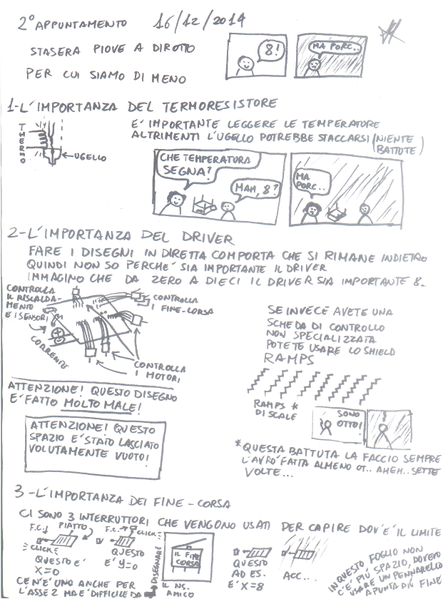 2° APPUNTAMENTO 16/12/2014
STASERA PIOVE A DIROTTO
PER CUI SIAMO DI MENO
8!
MA PORC..
1-L'IMPORTANZA DEL TERMORESISTORE
THERMO
UGELLO
E' IMPORTANTE LEGGERE LE TEMPERATURE
ALTRIMENTI L'UGELLO POTREBBE STACCARSI (NIENTE
BATTUTE)
CHE TEMPERATURA
SEGNA?
MAH, 8?
MA
PORC..
2-L'IMPORTANZA DEL DRIVER
FARE I DISEGNI IN DIRETTA COMPORTA CHE SI RIMANE INDIETRO
QUINDI NON SO PERCHE' SIA IMPORTANTE IL DRIVER
IMMAGINO CHE DA ZERO A DIECI IL DRIVER SIA IMPORTANTE 8.
CONTROLLA
IL RISCALDA-
MENTO
E I SENSORI
CORRENTE
CONTROLLA
I FINE-CORSA
CONTROLLA
I MOTORI
SE INVECE AVETE UNA
SCHEDA DI CONTROLLO
NON SPECIALIZZATA
POTETE USARE LO SHIELD
RAMPS
RAMPS *
DI SCALE
SONO
OTTO!
ATTENZIONE! QUESTO DISEGNO
E' FATTO MOLTO MALE!
ATTENZIONE! QUESTO
SPAZIO E' STATO LASCIATO
VOLUTAMENTE VUOTO!
*QUESTA BATTUTA LA FACCIO SEMPRE
L'AVRO' FATTA ALMENO OT.. AHEH.. SETTE
VOLTE...
3-L'IMPORTANZA DEI FINE-CORSA
CI SONO 3 INTERRUTTORI CHE VENGONO USATI PER CAPIRE DOV'E' IL LIMITE
F.C. PIATTO
CLICK
QUESTO E'
X=0
F.C.
CLICK
QUESTO
E' Y=0
CE N'E' UNO ANCHE PER
L'ASSE Z MA E' DIFFICILE DA
DISEGNARE
IL FINE
CORSA
IL NS.
AMICO
QUESTO
AD ES.
E' X=8
ACC...
IN QUESTO FOGLIO NON
C'E' PIU' SPAZIO, DOVEVO
USARE UN PENNARELLO
A PUNTA DI FINE